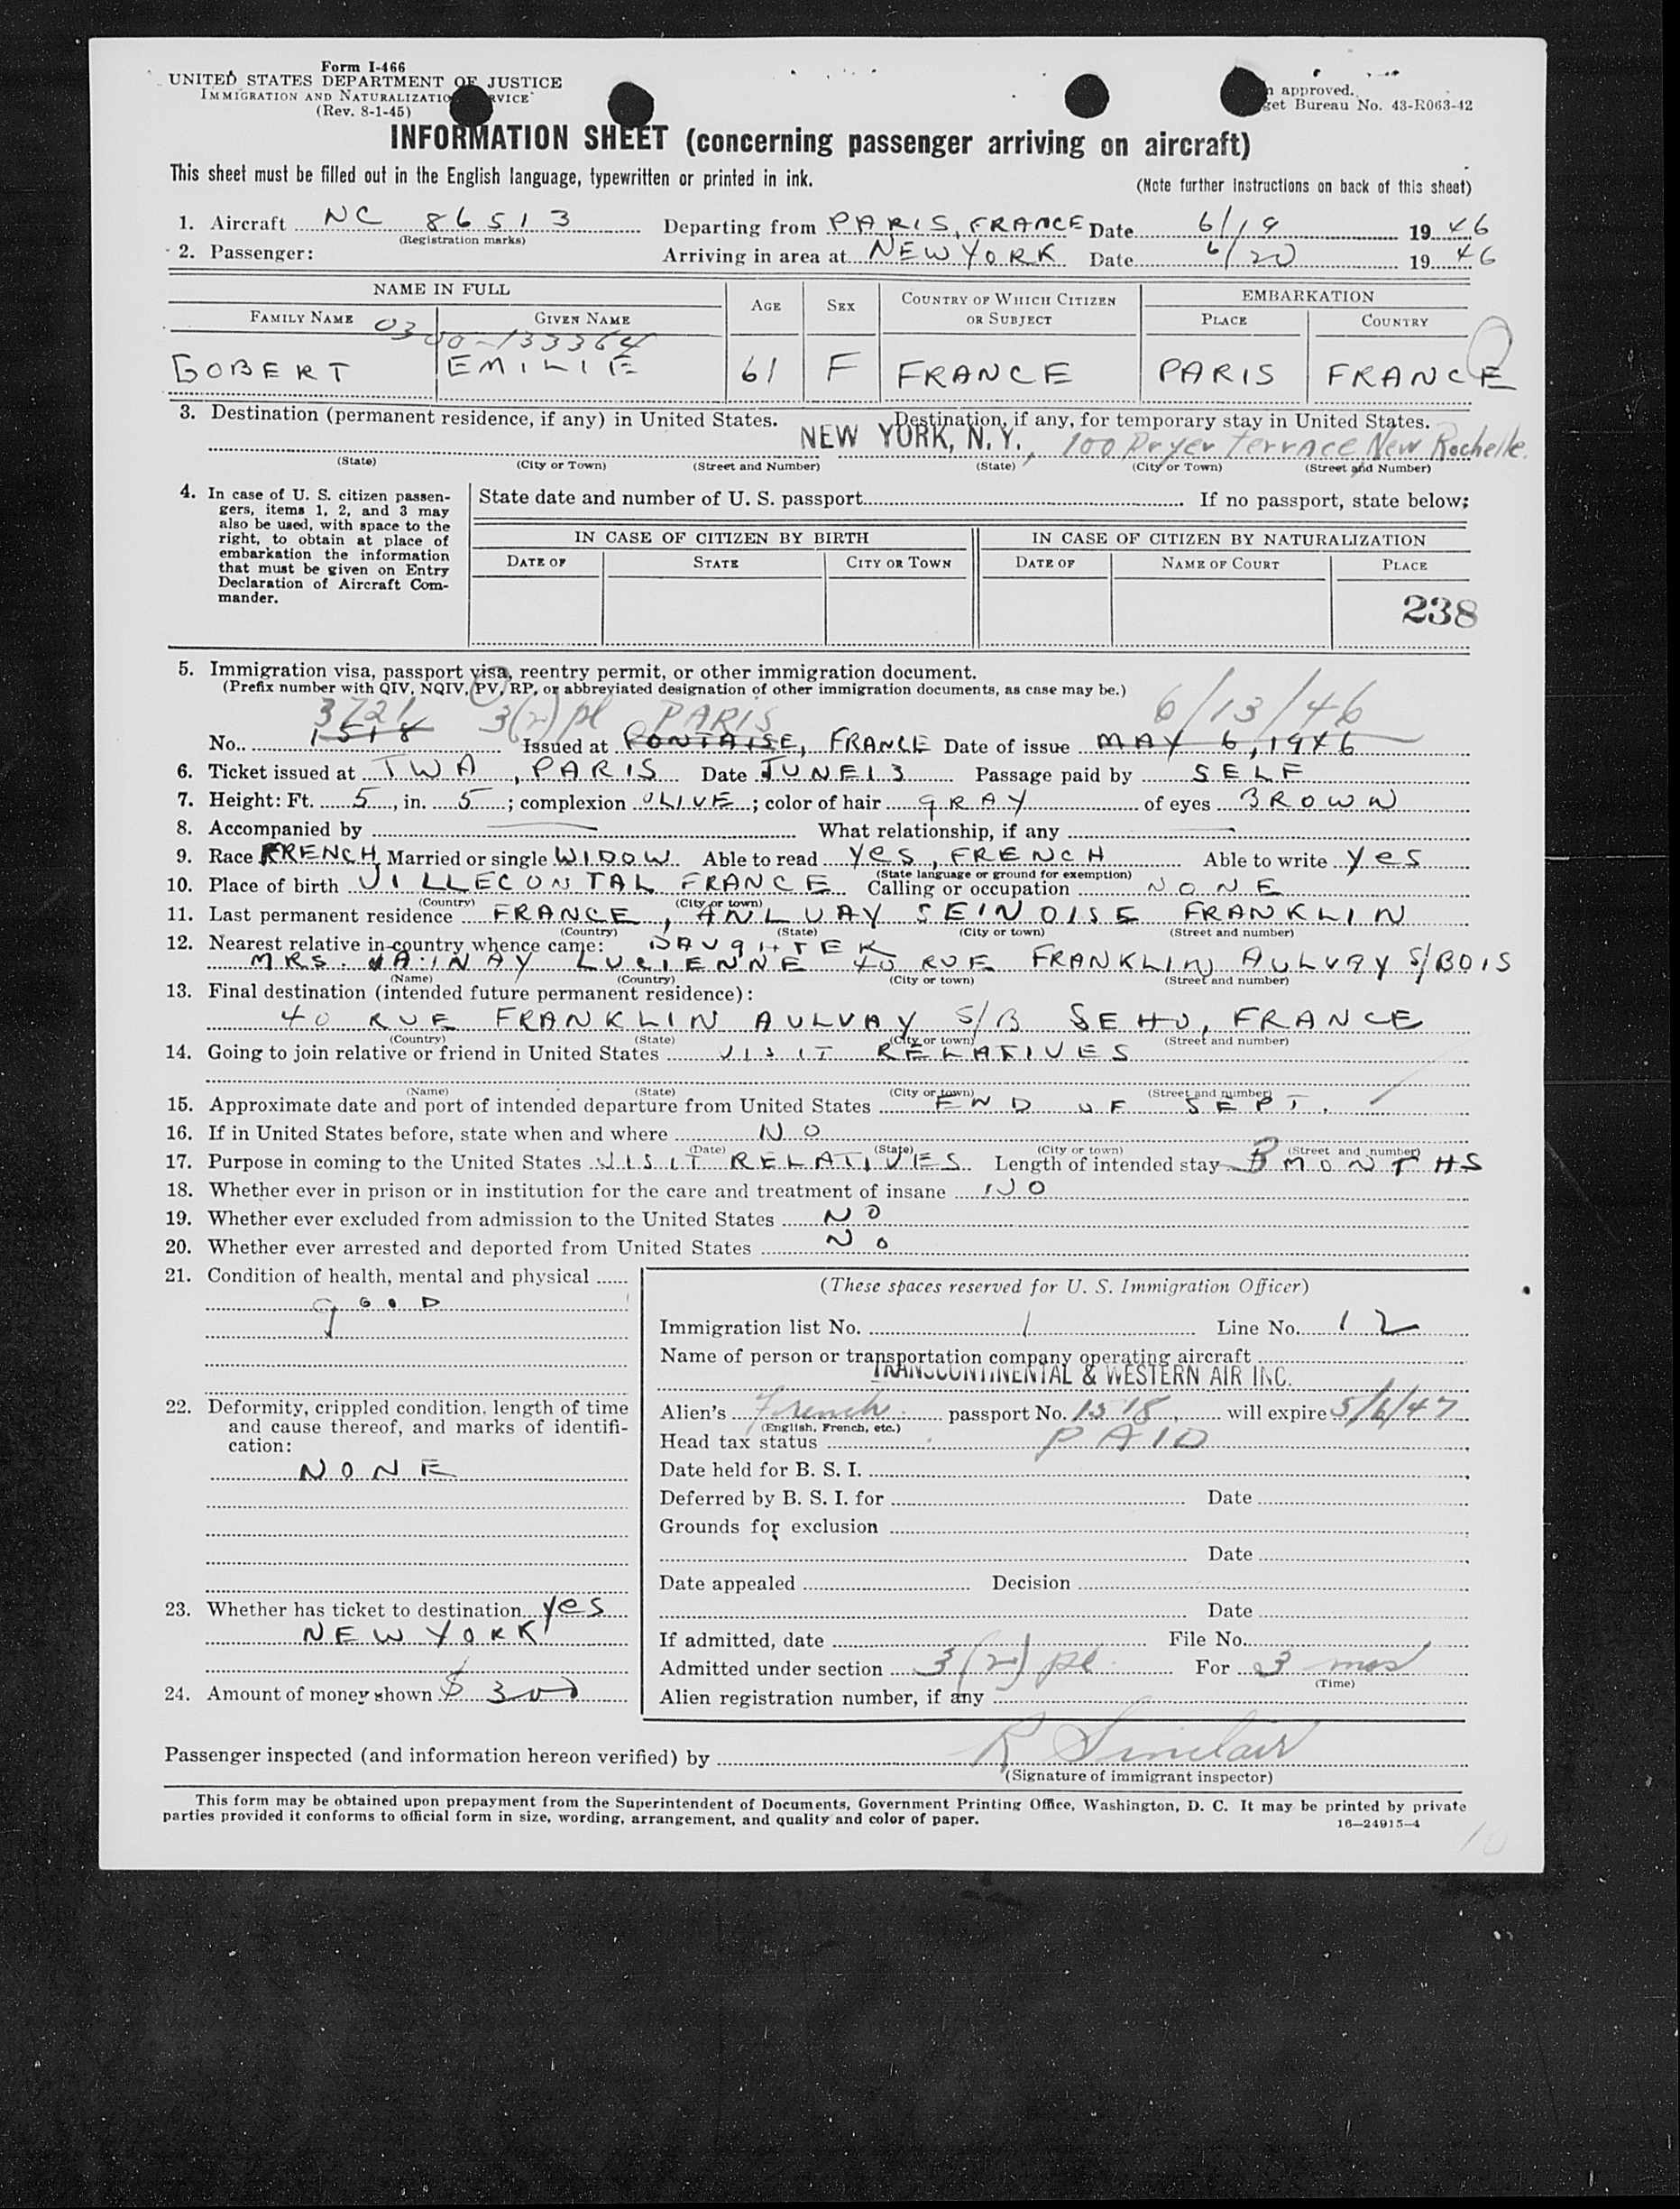 Form I-466
UNITED STATES DEPARTMENT OF JUSTICE
IMMIGRATION AND NATURALIZATION SERVICE
(Rev. 8-1-45)
approved.
Bureau No. 43-R063-42
INFORMATION SHEET (concerning passenger arriving on aircraft)
This sheet must be filled out in the English language, typewritten or printed in ink.
(Note further instructions on back of this sheet)
1. Aircraft NC 86513 Departing from PARIS, FRANCE Date 6/19 1946
(Registration marks)
2. Passenger: Arriving in area at NEW YORK Date 6/20 1946
NAME IN FULL AGE SEX COUNTRY OF WHICH CITIZEN OR SUBJECT EMBARKATION
FAMILY NAME GIVEN NAME PLACE COUNTRY
0300-133364
GOBERT EMILIE 61 F FRANCE PARIS FRANCE
3. Destination (permanent residence, if any) in United States. Destination, if any, for temporary stay in United States.
NEW YORK, N.Y., 100 Dryer Terrace New Rochelle.
(State) (City or Town) (Street and Number) (State) (City or Town) (Street and Number)
4. In case of U. S. citizen passen-
gers, items 1, 2, and 3 may
also be used, with space to the
right, to obtain at place of
embarkation the information
that must be given on Entry
Declaration of Aircraft Com-
mander.
State date and number of U. S. passport If no passport, state below:
IN CASE OF CITIZEN BY BIRTH IN CASE OF CITIZEN BY NATURALIZATION
DATE OF STATE CITY OR TOWN DATE OF NAME OF COURT PLACE
238
5. Immigration visa, passport visa, reentry permit, or other immigration document.
(Prefix number with QIV, NQIV, PV, RP, or abbreviated designation of other immigration documents, as case may be.)
3721 3(2) pl PARIS 6/13/46
No. 1518 Issued at PONTAISE, FRANCE Date of issue MAY 6, 1946
6. Ticket issued at TWA, PARIS Date JUNE 13 Passage paid by SELF
7. Height: Ft. 5, in. 5; complexion OLIVE; color of hair GRAY of eyes BROWN
8. Accompanied by What relationship, if any
9. Race FRENCH Married or single WIDOW Able to read yes, FRENCH Able to write yes
(State language or ground for exemption)
10. Place of birth VILLECONTAL FRANCE Calling or occupation NONE
(Country) (City or town)
11. Last permanent residence FRANCE, ANLUAY SEINOISE FRANKLIN
(Country) (State) (City or town) (Street and number)
12. Nearest relative in country whence came: DAUGHTER
MRS. LUCIENNE 40 RUE FRANKLIN AULVAY S/BOIS
(Name) (Country) (City or town) (Street and number)
13. Final destination (intended future permanent residence):
40 RUE FRANKLIN AULVAY S/B SEHO, FRANCE
(Country) (State) (City or town) (Street and number)
14. Going to join relative or friend in United States VISIT RELATIVES
(Name) (State) (City or town) (Street and number)
15. Approximate date and port of intended departure from United States END OF SEPT.
16. If in United States before, state when and where NO
(Date) (State) (City or town) (Street and number)
17. Purpose in coming to the United States VISIT RELATIVES Length of intended stay 3 MONTHS
18. Whether ever in prison or in institution for the care and treatment of insane NO
19. Whether ever excluded from admission to the United States NO
20. Whether ever arrested and deported from United States No
21. Condition of health, mental and physical
GOOD
22. Deformity, crippled condition, length of time
and cause thereof, and marks of identifi-
cation:
NONE
23. Whether has ticket to destination yes
NEW YORK
24. Amount of money shown $ 300
(These spaces reserved for U. S. Immigration Officer)
Immigration list No. 1 Line No. 12
Name of person or transportation company operating aircraft
TRANSCONTINENTAL & WESTERN AIR INC.
Alien's French passport No. 1518, will expire 5/6/47
(English, French, etc.)
Head tax status PAID
Date held for B. S. I.
Deferred by B. S. I. for Date
Grounds for exclusion
Date
Date appealed Decision
Date
If admitted, date File No.
Admitted under section 3(2) pl For 3 mos
(Time)
Alien registration number, if any
Passenger inspected (and information hereon verified) by R Sinclair
(Signature of immigrant inspector)
This form may be obtained upon prepayment from the Superintendent of Documents, Government Printing Office, Washington, D. C. It may be printed by private
parties provided it conforms to official form in size, wording, arrangement, and quality and color of paper.
16—24915-4
10